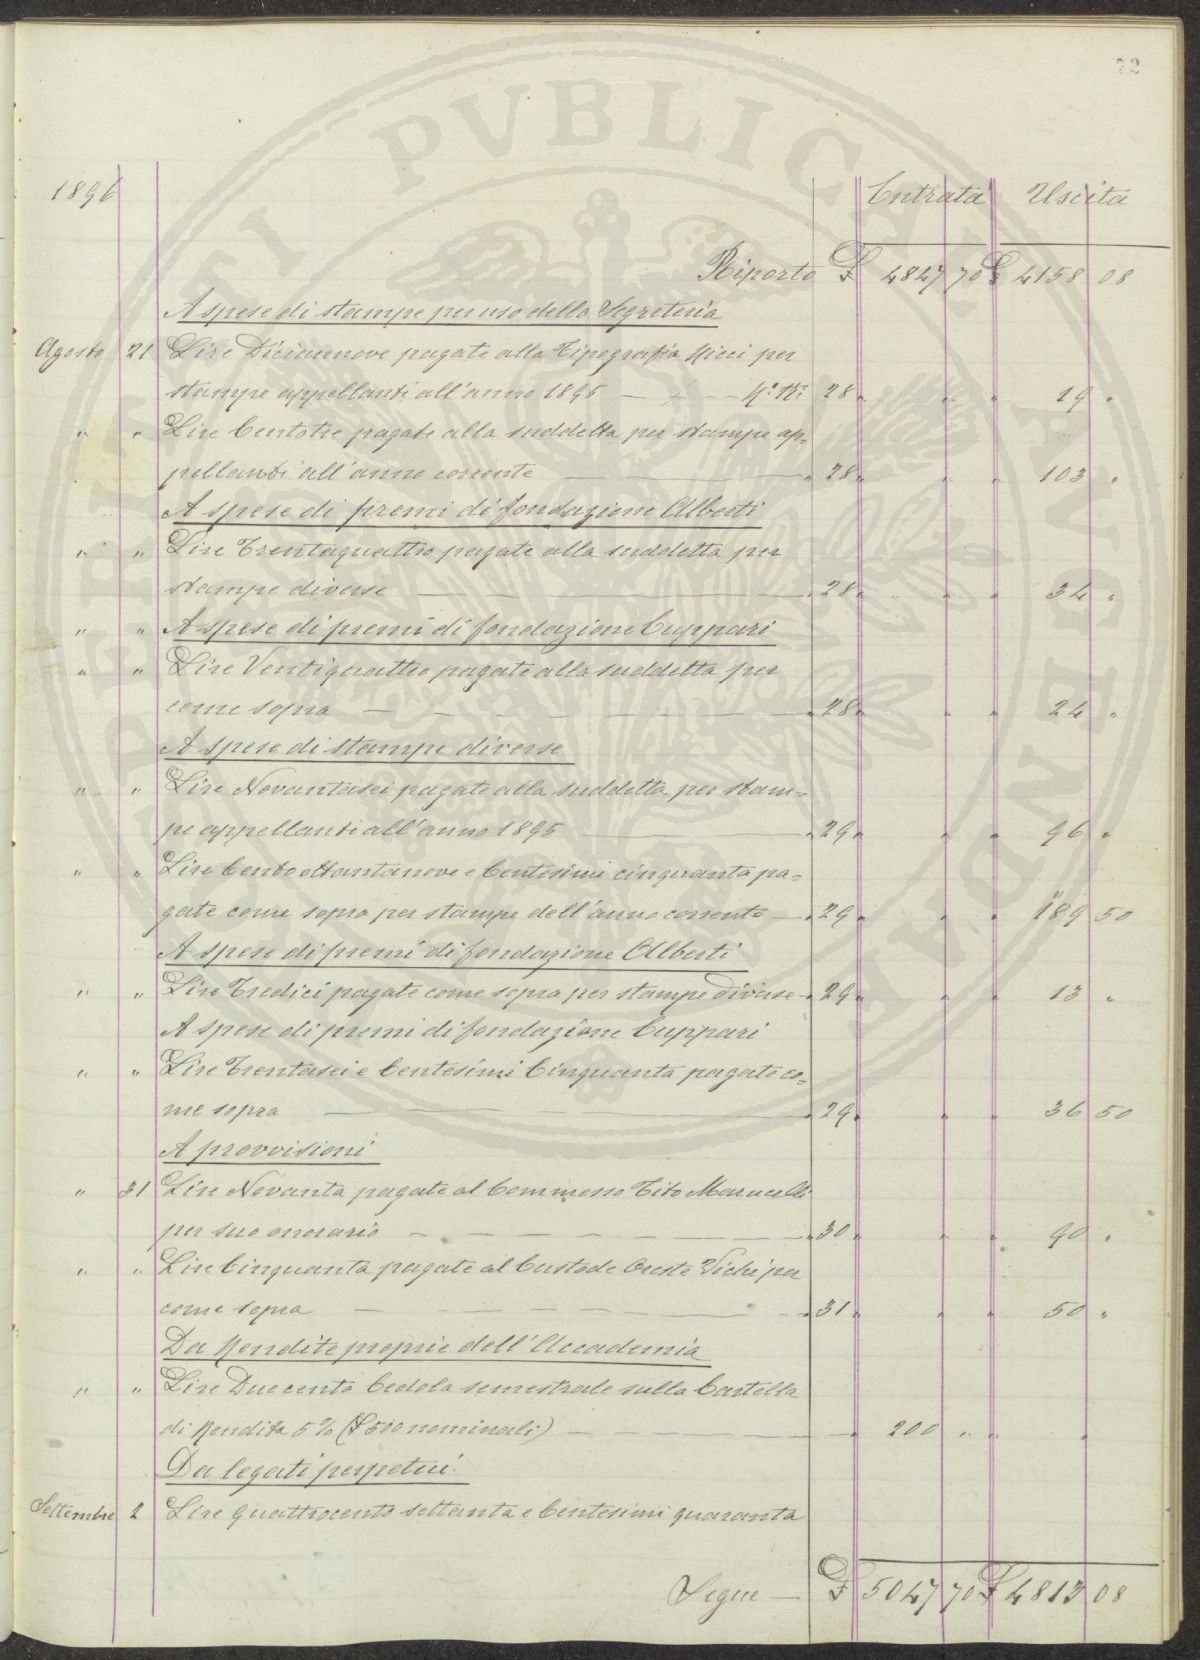 72
1896
Entrata Uscita
Riporto £ 4847 70 £ 4158 08
A spese di stampe per uso della Segreteria
Agosto 21 Lire Diciannove pagate alla Tipografia Ricci per
stampe appellanti all'anno 1895 — — N.º Ri: 28 " " " 19 "
" " Lire Centotre pagate alla suddetta per stampe ap=
pellanti all'anno corrente — " 28 " " " 103 "
A spese di premi di fondazione Alberti
" " Lire Trentaquattro pagate alla suddetta per
stampe diverse — " 28 " " " 34 "
" " A spese di premi di fondazione Cuppari
" " Lire Ventiquattro pagate alla suddetta per
come sopra — " 28 " " " 24 "
A spese di stampe diverse
" " Lire Novantasei pagate alla suddetta per stam=
pe appellanti all'anno 1895 — " 29 " " " 96 "
" " Lire Cento ottantanove e Centesimi cinquanta pa=
gate come sopra per stampe dell'anno corrente — " 29 " " " 189 50
A spese di premi di fondazione Alberti
" " Lire Tredici pagate come sopra per stampe diverse " 29 " " " 13 "
A spese di premi di fondazione Cuppari
" " Lire Trentasei e Centesimi Cinquanta pagate co=
me sopra — " 29 " " " 36 50
A provvisioni
" 31 Lire Novanta pagate al Commesso Tito Marucelli
per suo onorario — " 30 " " " 90 "
" " Lire Cinquanta pagate al Custode Oreste Vichi per
come sopra — " 31 " " " 50 "
Da Rendite proprie dell'Accademia
" " Lire Duecento Cedola semestrale sulla Cartella
di Rendita 5 % (£ 500 nominali) — " 200 " " "
Da legati perpetui
Settembre 2 Lire Quattrocento settanta e Centesimi quaranta
Segue — £ 5047 70 £ 4813 08
PUBLICAE